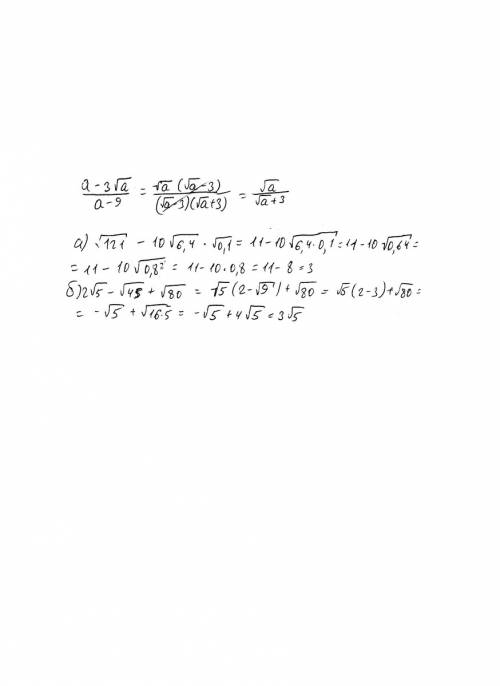 (a - 3√a)/(a - 9) = (√a (√a - 3))/((√a - 3)(√a + 3)) = √a/(√a + 3)
а) √121 - 10√6,4 · √0,1 = 11 - 10√6,4·0,1 = 11 - 10√0,64 =
= 11 - 10√0,8² = 11 - 10·0,8 = 11 - 8 = 3
б) 2√5 - √45 + √80 = √5(2 - √9) + √80 = √5(2 - 3) + √80 =
= -√5 + √16·5 = -√5 + 4√5 = 3√5